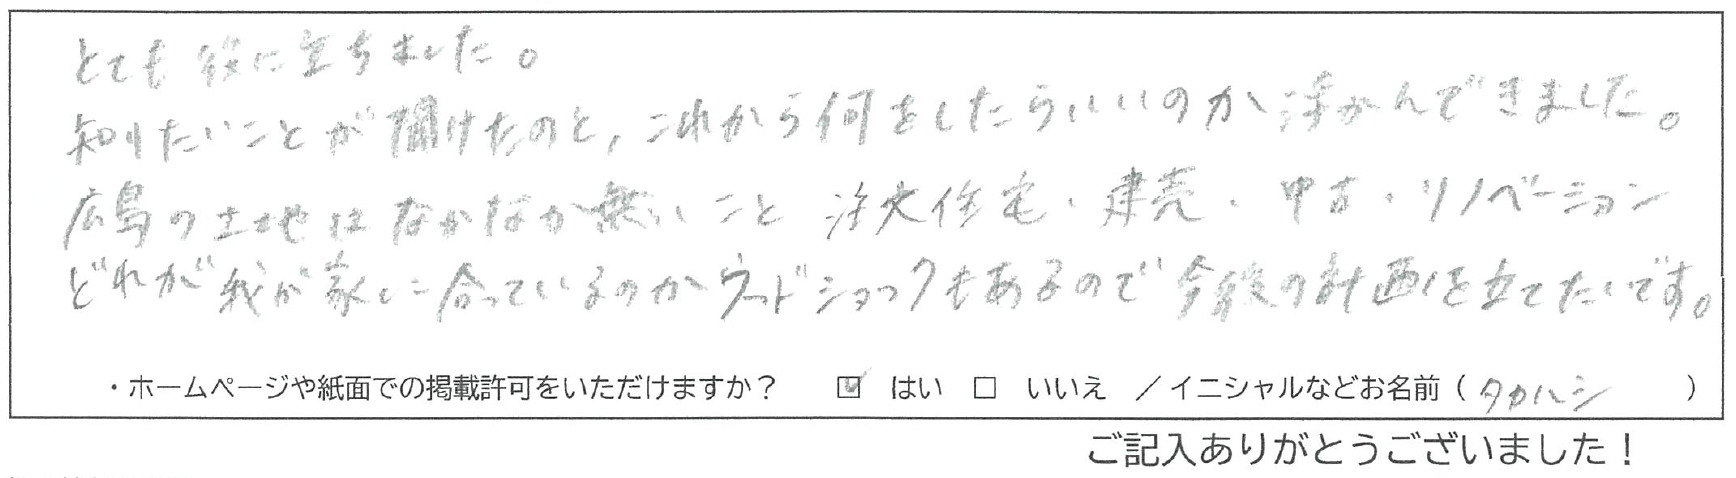 とても役に立ちました。
知りたいことが聞けたのと、これから何をしたらいいのか浮かんできました。
広島の土地はなかなか無いこと 注文住宅・建売・中古・リノベーション
どれが我が家に合っているのかウッドショックもあるので今後の計画を立てたいです。
・ホームページや紙面での掲載許可をいただけますか? ☑ はい □ いいえ /イニシャルなどお名前(タカハシ)
ご記入ありがとうございました!